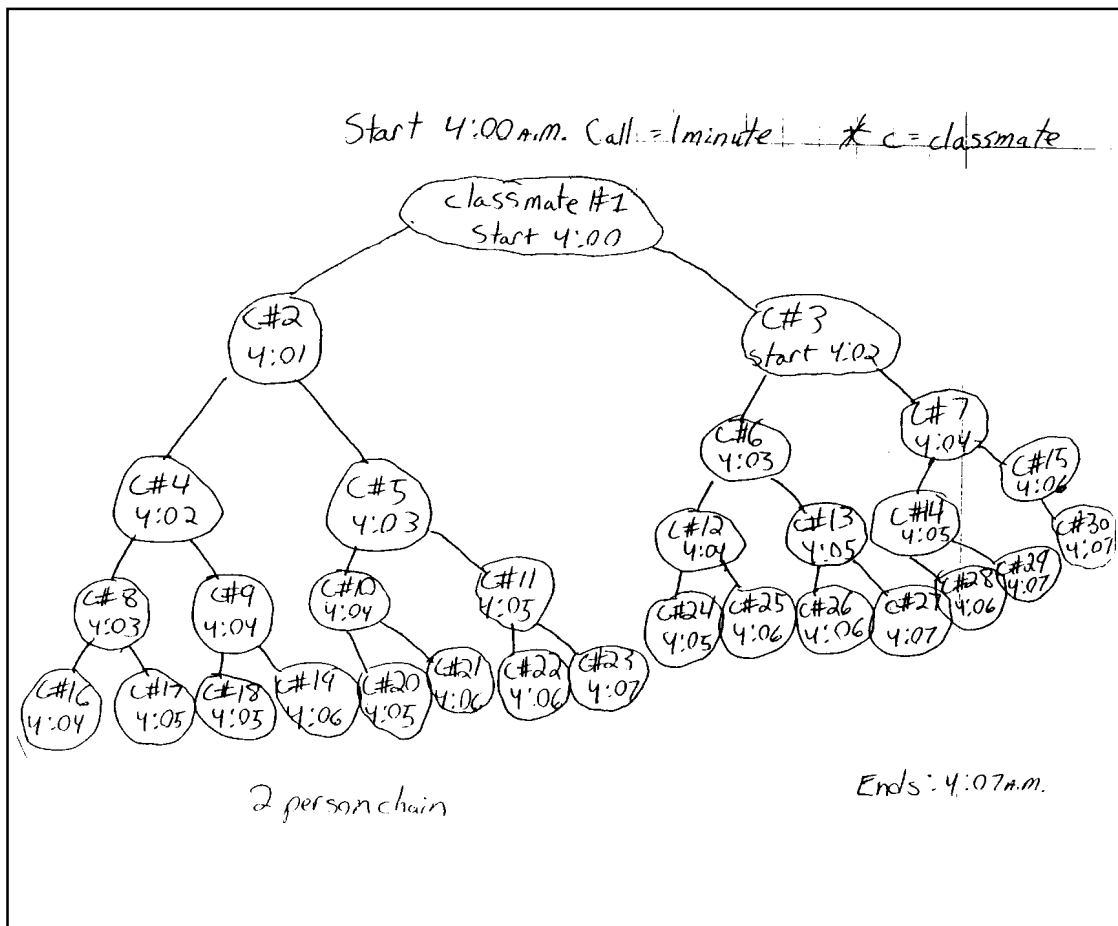 Start 4:00 A.M. Call = 1minute * c = classmate
classmate #1
Start 4:00
C#2
4:01
C#3
start 4:02
C#4
4:02
C#5
4:03
C#6
4:03
C#7
4:04
C#8
4:03
C#9
4:04
C#10
4:04
C#11
4:05
C#12
4:04
C#13
4:05
C#14
4:05
C#15
4:06
C#16
4:04
C#17
4:05
C#18
4:05
C#19
4:06
C#20
4:05
C#21
4:06
C#22
4:06
C#23
4:07
C#24
4:05
C#25
4:06
C#26
4:06
C#27
4:07
C#28
4:06
C#29
4:07
C#30
4:07
2 person chain
Ends: 4:07 A.M.